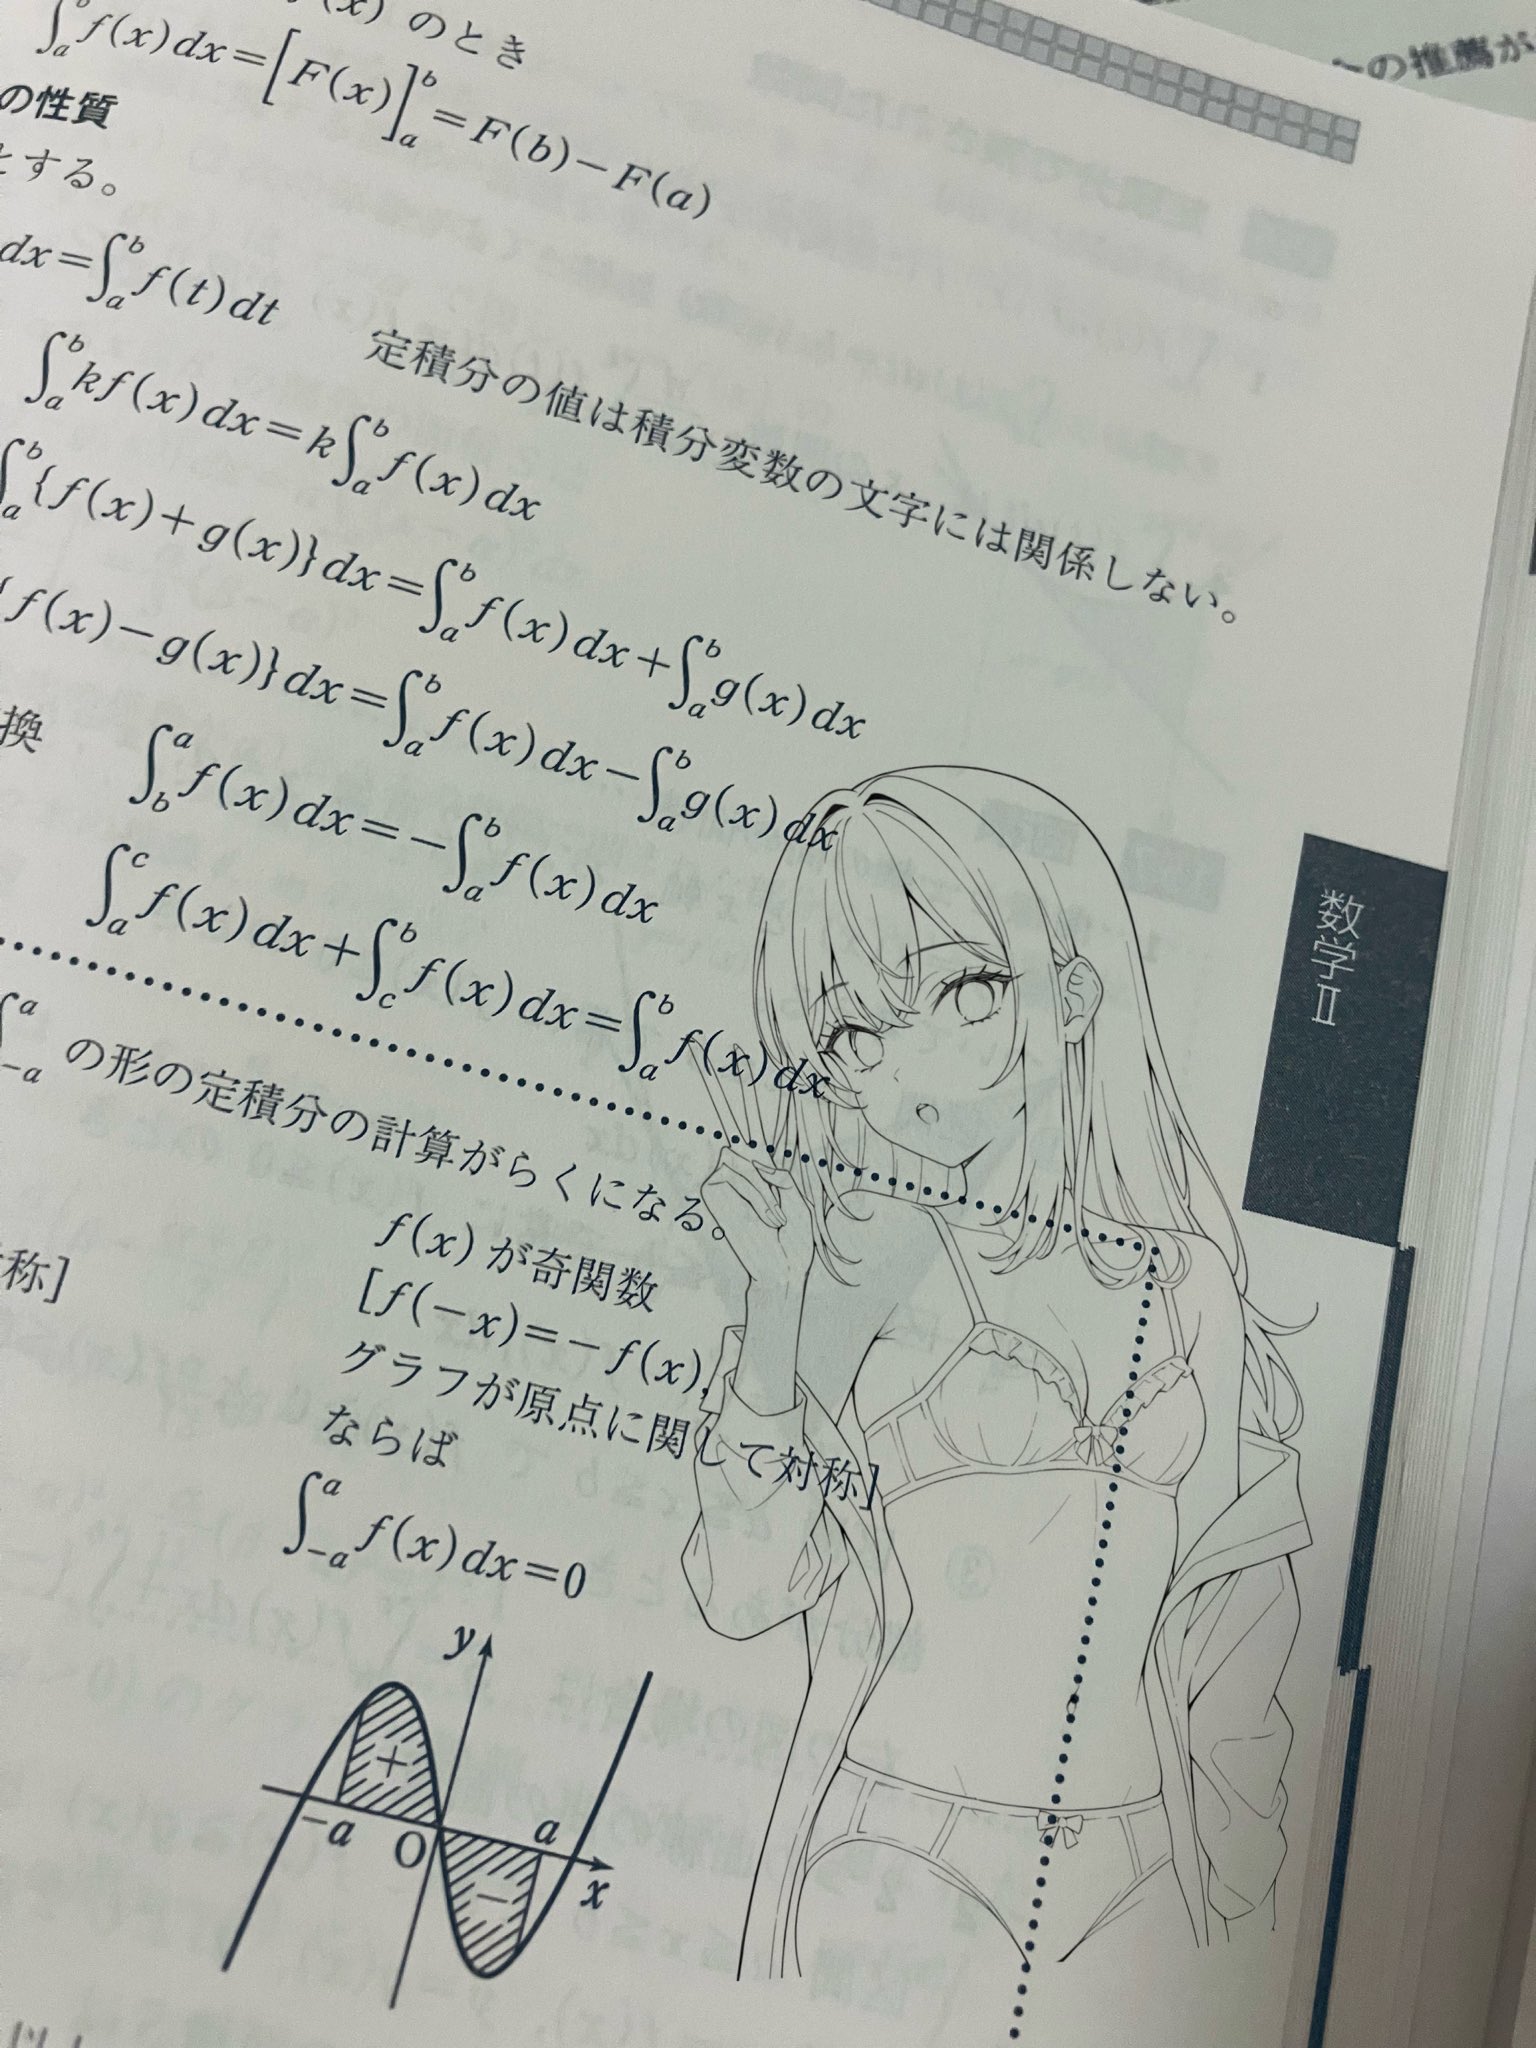 のとき
∫ₐᵇf(x)dx=[F(x)]ₐᵇ=F(b)−F(a)
の推薦が
の性質
とする。
dx=∫ₐᵇf(t)dt 定積分の値は積分変数の文字には関係しない。
∫ₐᵇkf(x)dx=k∫ₐᵇf(x)dx
∫ₐᵇ{f(x)+g(x)}dx=∫ₐᵇf(x)dx+∫ₐᵇg(x)dx
{f(x)−g(x)}dx=∫ₐᵇf(x)dx−∫ₐᵇg(x)dx
換 ∫_b^a f(x)dx=−∫ₐᵇf(x)dx
∫_a^c f(x)dx+∫_c^b f(x)dx=∫ₐᵇf(x)dx
数学Ⅱ
∫_{-a}^{a} の形の定積分の計算がらくになる。
称]
f(x)が奇関数
[f(−x)=−f(x),
グラフが原点に関して対称]
ならば
∫_{-a}^{a} f(x)dx=0
y
+
−a
O
a
−
x